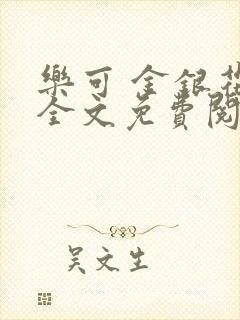 樂可 金銀花
全文免費閱
吴文生